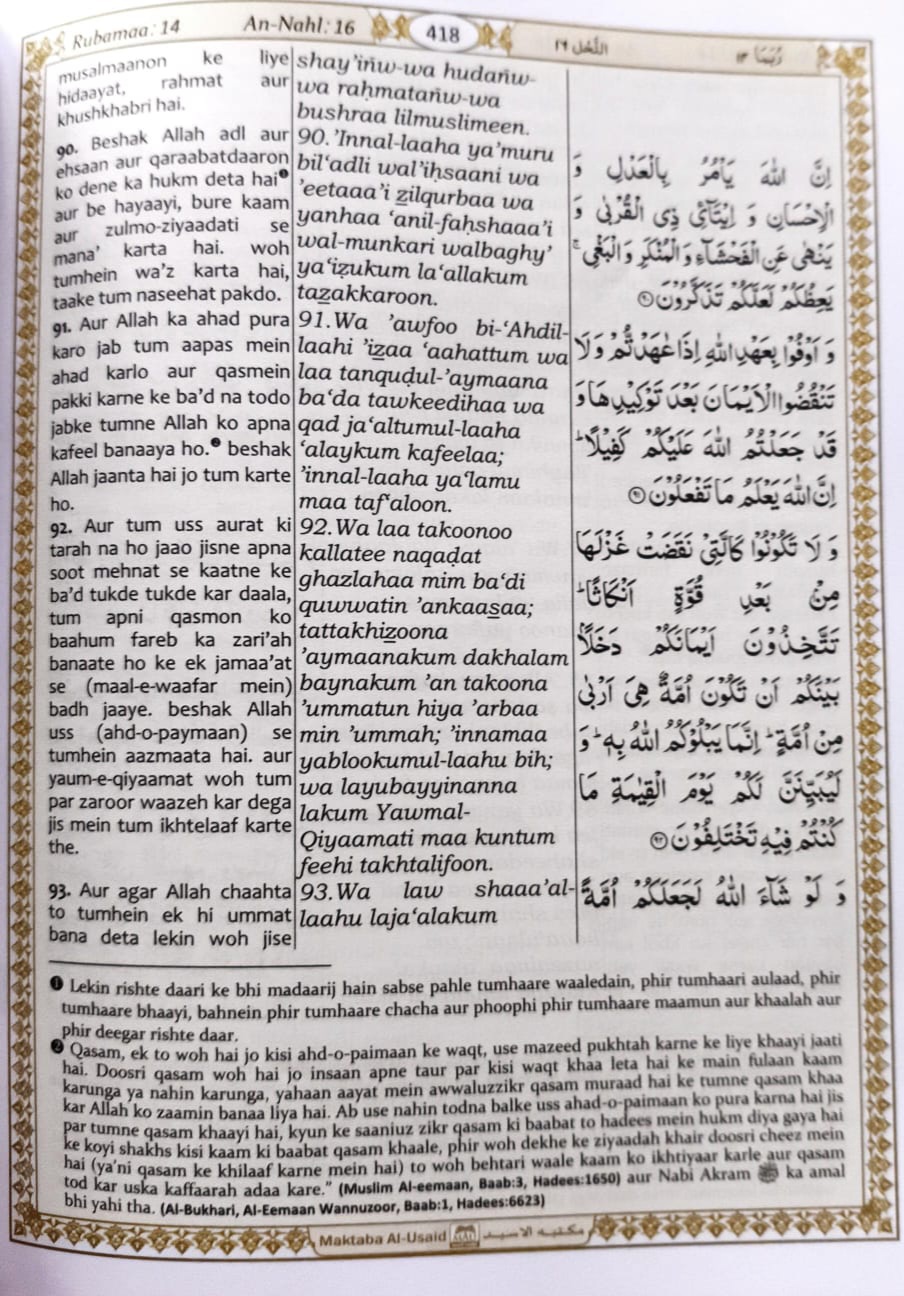 Rubamaa: 14
An-Nahl: 16
418
النَّحْل ١٦
رُبَمَا ١٤
musalmaanon ke liye
hidaayat, rahmat aur
khushkhabri hai.
90. Beshak Allah adl aur
ehsaan aur qaraabatdaaron
ko dene ka hukm deta hai❶
aur be hayaayi, bure kaam
aur zulmo-ziyaadati se
mana’ karta hai. woh
tumhein wa’z karta hai,
taake tum naseehat pakdo.
91. Aur Allah ka ahad pura
karo jab tum aapas mein
ahad karlo aur qasmein
pakki karne ke ba’d na todo
jabke tumne Allah ko apna
kafeel banaaya ho.❷ beshak
Allah jaanta hai jo tum karte
ho.
92. Aur tum uss aurat ki
tarah na ho jaao jisne apna
soot mehnat se kaatne ke
ba’d tukde tukde kar daala,
tum apni qasmon ko
baahum fareb ka zari’ah
banaate ho ke ek jamaa’at
se (maal-e-waafar mein)
badh jaaye. beshak Allah
uss (ahd-o-paymaan) se
tumhein aazmaata hai. aur
yaum-e-qiyaamat woh tum
par zaroor waazeh kar dega
jis mein tum ikhtelaaf karte
the.
93. Aur agar Allah chaahta
to tumhein ek hi ummat
bana deta lekin woh jise
shay’iñw-wa hudañw-
wa raḥmatañw-wa
bushraa lilmuslimeen.
90.’Innal-laaha ya’muru
bil‘adli wal’iḥsaani wa
’eetaaa’i z̲ilqurbaa wa
yanhaa ‘anil-faḥshaaa’i
wal-munkari walbaghy’
ya‘iẓukum la‘allakum
taz̲akkaroon.
91.Wa ’awfoo bi-‘Ahdil-
laahi ’iz̲aa ‘aahattum wa
laa tanquḍul-’aymaana
ba‘da tawkeedihaa wa
qad ja‘altumul-laaha
‘alaykum kafeelaa;
’innal-laaha ya‘lamu
maa taf‘aloon.
92.Wa laa takoonoo
kallatee naqaḍat
ghazlahaa mim ba‘di
quwwatin ’ankaas̲aa;
tattakhiz̲oona
’aymaanakum dakhalam
baynakum ’an takoona
’ummatun hiya ’arbaa
min ’ummah; ’innamaa
yablookumul-laahu bih;
wa layubayyinanna
lakum Yawmal-
Qiyaamati maa kuntum
feehi takhtalifoon.
93.Wa law shaaa’al-
laahu laja‘alakum
اِنَّ اللّٰهَ يَاْمُرُ بِالْعَدْلِ وَ
الْاِحْسَانِ وَ اِيْتَآئِ ذِي الْقُرْبٰى وَ
يَنْهٰى عَنِ الْفَحْشَآءِ وَ الْمُنْكَرِ وَ الْبَغْيِ ۚ
يَعِظُكُمْ لَعَلَّكُمْ تَذَكَّرُوْنَ ۝٩٠
وَ اَوْفُوْا بِعَهْدِ اللّٰهِ اِذَا عٰهَدْتُّمْ وَ لَا
تَنْقُضُوا الْاَيْمَانَ بَعْدَ تَوْكِيْدِهَا وَ
قَدْ جَعَلْتُمُ اللّٰهَ عَلَيْكُمْ كَفِيْلًا ؕ
اِنَّ اللّٰهَ يَعْلَمُ مَا تَفْعَلُوْنَ ۝٩١
وَ لَا تَكُوْنُوْا كَالَّتِيْ نَقَضَتْ غَزْلَهَا
مِنْۢ بَعْدِ قُوَّةٍ اَنْكَاثًا ؕ
تَتَّخِذُوْنَ اَيْمَانَكُمْ دَخَلًۢا
بَيْنَكُمْ اَنْ تَكُوْنَ اُمَّةٌ هِيَ اَرْبٰى
مِنْ اُمَّةٍ ؕ اِنَّمَا يَبْلُوْكُمُ اللّٰهُ بِهٖ ؕ وَ
لَيُبَيِّنَنَّ لَكُمْ يَوْمَ الْقِيٰمَةِ مَا
كُنْتُمْ فِيْهِ تَخْتَلِفُوْنَ ۝٩٢
وَ لَوْ شَآءَ اللّٰهُ لَجَعَلَكُمْ اُمَّةً
❶ Lekin rishte daari ke bhi madaarij hain sabse pahle tumhaare waaledain, phir tumhaari aulaad, phir
tumhaare bhaayi, bahnein phir tumhaare chacha aur phoophi phir tumhaare maamun aur khaalah aur
phir deegar rishte daar.
❷ Qasam, ek to woh hai jo kisi ahd-o-paimaan ke waqt, use mazeed pukhtah karne ke liye khaayi jaati
hai. Doosri qasam woh hai jo insaan apne taur par kisi waqt khaa leta hai ke main fulaan kaam
karunga ya nahin karunga, yahaan aayat mein awwaluzzikr qasam muraad hai ke tumne qasam khaa
kar Allah ko zaamin banaa liya hai. Ab use nahin todna balke uss ahad-o-paimaan ko pura karna hai jis
par tumne qasam khaayi hai, kyun ke saaniuz zikr qasam ki baabat to hadees mein hukm diya gaya hai
ke koyi shakhs kisi kaam ki baabat qasam khaale, phir woh dekhe ke ziyaadah khair doosri cheez mein
hai (ya’ni qasam ke khilaaf karne mein hai) to woh behtari waale kaam ko ikhtiyaar karle aur qasam
tod kar uska kaffaarah adaa kare.” (Muslim Al-eemaan, Baab:3, Hadees:1650) aur Nabi Akram ﷺ ka amal
bhi yahi tha. (Al-Bukhari, Al-Eemaan Wannuzoor, Baab:1, Hadees:6623)
Maktaba Al-Usaid